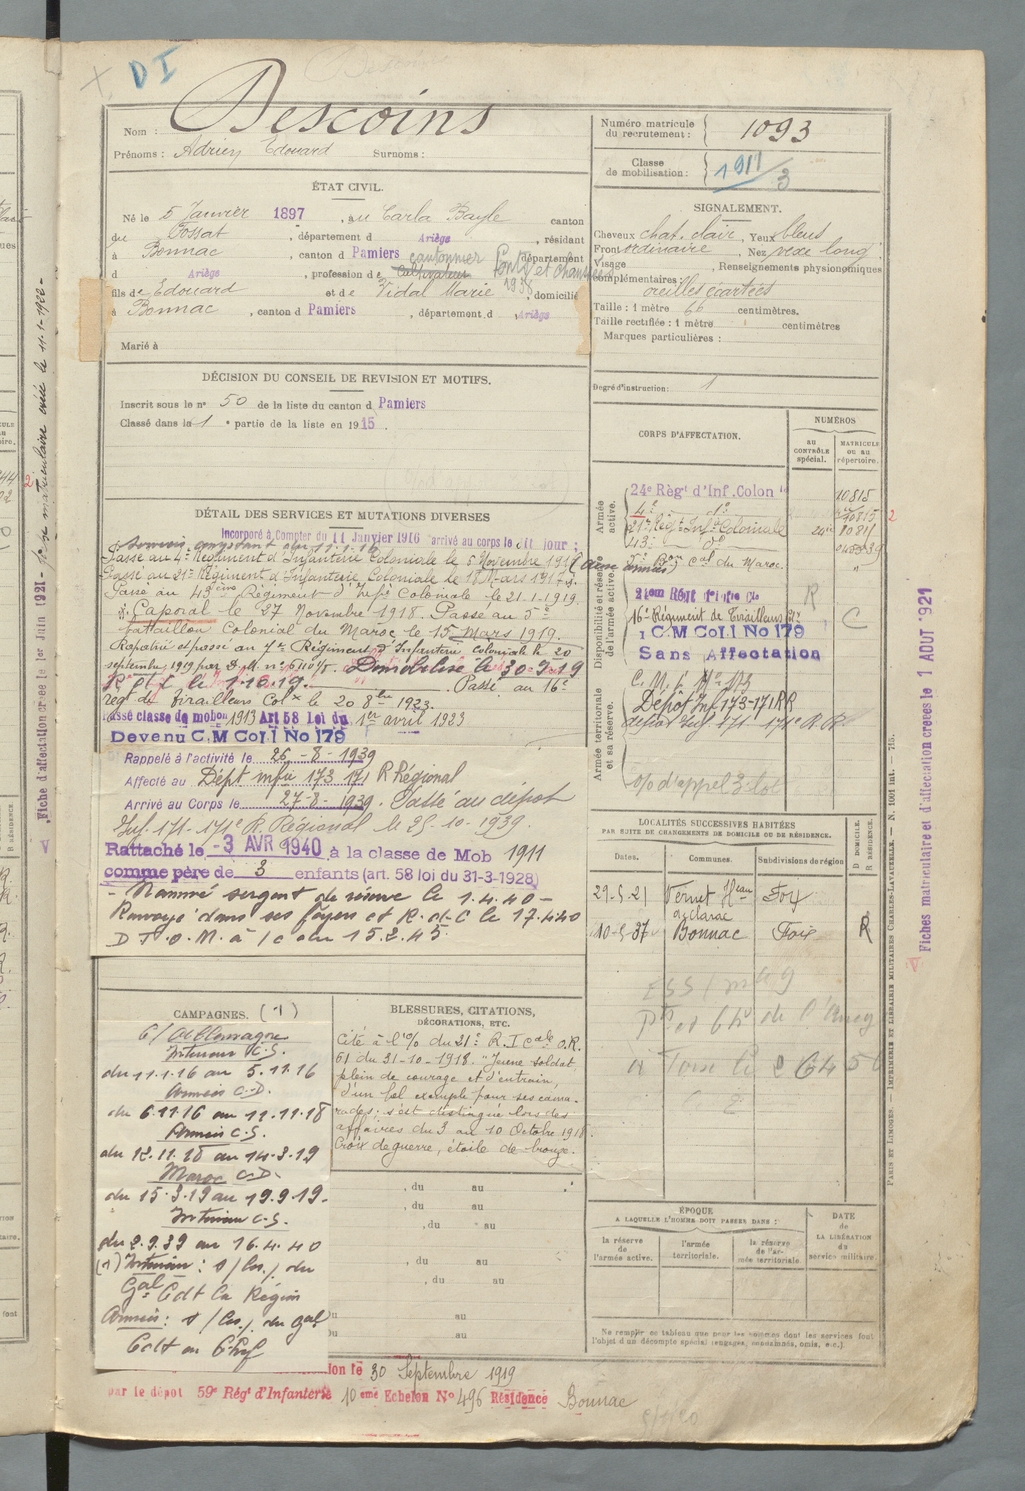 D I
Nom : Descoins
Prénoms : Adrien Edouard Surnoms :
Numéro matricule du recrutement : 1093
Classe de mobilisation : 1911/3
ÉTAT CIVIL.
Né le 5 Janvier 1897, au Carla Bayle canton
du Fossat, département d Ariège, résidant
à Bonnac, canton d Pamiers, département
d Ariège, profession de cultivateur cantonnier Ponts et Chaussées 1938
fils de Edouard et de Vidal Marie, domicilié
à Bonnac, canton d Pamiers, département d Ariège
Marié à
SIGNALEMENT.
Cheveux chat. clair, Yeux bleus
Front ordinaire, Nez vexe long
Visage , Renseignements physionomiques
complémentaires :
oreilles écartées
Taille : 1 mètre 66 centimètres.
Taille rectifiée : 1 mètre centimètres
Marques particulières :
Degré d'instruction : 1
DÉCISION DU CONSEIL DE REVISION ET MOTIFS.
Inscrit sous le n° 50 de la liste du canton d Pamiers
Classé dans la 1 e partie de la liste en 1915.
DÉTAIL DES SERVICES ET MUTATIONS DIVERSES
Incorporé à Compter du 11 Janvier 1916 arrivé au corps le dit jour ;
Passé au 4e Régiment d'Infanterie Coloniale le 5 Novembre 1917
Passé au 21e Régiment d'Infanterie Coloniale le 18 Mars 1918.
Passé au 43ème Régiment d'Infie Coloniale le 21-1-1919.
Caporal le 27 Novembre 1918. Passé au 5e
battaillon Colonial du Maroc le 15 Mars 1919.
Rapatrié et passé au 7e Régiment d'Infanterie Coloniale le 20
septembre 1919 Démobilisé le 30-9-19
Passé au 16e
rég. de Tirailleurs Colx le 20 8bre 1923.
Passé classe de mobon 1913 Art 58 Loi du 1er avril 1923
Devenu C.M Col.1 No 179
Rappelé à l'activité le 26-8-1939
Affecté au Dépt infie 173 171 R Régional
Arrivé au Corps le 27-8-1939. Passé au dépot
Inf. 171-171e R. Régional le 25-10-1939.
Rattaché le -3 AVR 1940 à la classe de Mob 1911
comme père de 3 enfants (art. 58 loi du 31-3-1928)
- Nommé sergent de réserve le 1.4.40 -
Renvoyé dans ses foyers et R.d.C le 17.4.40
D T.O.M. à /c du 15.2.45.
CORPS D'AFFECTATION.
NUMÉROS
au CONTRÔLE spécial.
MATRICULE ou au répertoire.
Armée active.
24e Régt d'Inf. Colon 10815
4e d°
21e Régt Infie Coloniale 10811
43e d°
5e Bon Cal du Maroc.
Disponibilité et réserve de l'armée active.
16e Régiment de Tirailleurs R
1 C M Col.1 No 179 C
Sans Affectation
Armée territoriale et sa réserve.
Dépôt Inf 173-171 RR
dépôt Inf. 171-171e R.R
LOCALITÉS SUCCESSIVES HABITÉES
PAR SUITE DE CHANGEMENTS DE DOMICILE OU DE RÉSIDENCE.
Dates. Communes. Subdivisions de région D DOMICILE. R RÉSIDENCE.
29-5-21 Vernet Foix
10-5-37 Bonnac Foix R
CAMPAGNES. (1)
C/ Allemagne
Intérieur C.S.
du 11.1.16 au 5.11.16
Armées C.D.
du 6.11.16 au 11.11.18
Armées C.S.
du 12.11.18 au 14.3.19
Maroc C.D.
du 15.3.19 au 19.9.19-
Intérieur C.S.
du 2.9.39 au 16.4.40
(1) Intérieur : s/ du
Gal Cdt la Région
Armées : s/ du gal
Cdt en Chef
BLESSURES, CITATIONS,
DÉCORATIONS, ETC.
Cité à l'O/ du 21e R.I Cale O.R.
61 du 21-10-1918. "Jeune soldat,
plein de courage et d'entrain,
d'un bel exemple pour ses cama-
rades ; s'est distingué lors des
affaires du 3 au 10 Octobre 1918
Croix de guerre, étoile de bronze.
, du au
, du au
, du au
, du au
, du au
au
au
ÉPOQUE
A LAQUELLE L'HOMME DOIT PASSER DANS :
la réserve de l'armée active.
l'armée territoriale.
la réserve de l'armée territoriale.
DATE de LA LIBÉRATION du service militaire.
Ne remplir ce tableau que pour les hommes dont les services font
l'objet d'un décompte spécial (engagés, omis, etc.)
30 Septembre 1919
par le dépot 59e Régt d'Infanterie 10eme Echelon No 496 Résidence Bonnac
Fiches matriculaire et d'affectation creées le 1 AOUT 1921
PARIS ET LIMOGES. — IMPRIMERIE ET LIBRAIRIE MILITAIRES CHARLES-LAVAUZELLE. — N. 1001 int. — 715.
Fiche d'affectation creée le 1er Juin 1921